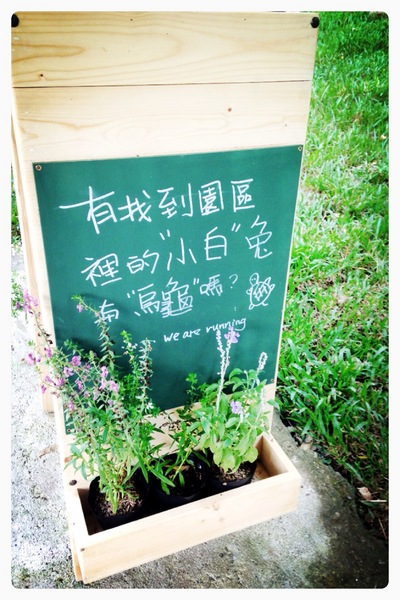 有找到園區
裡的"小白"兔
和"烏龜"嗎?
we are running